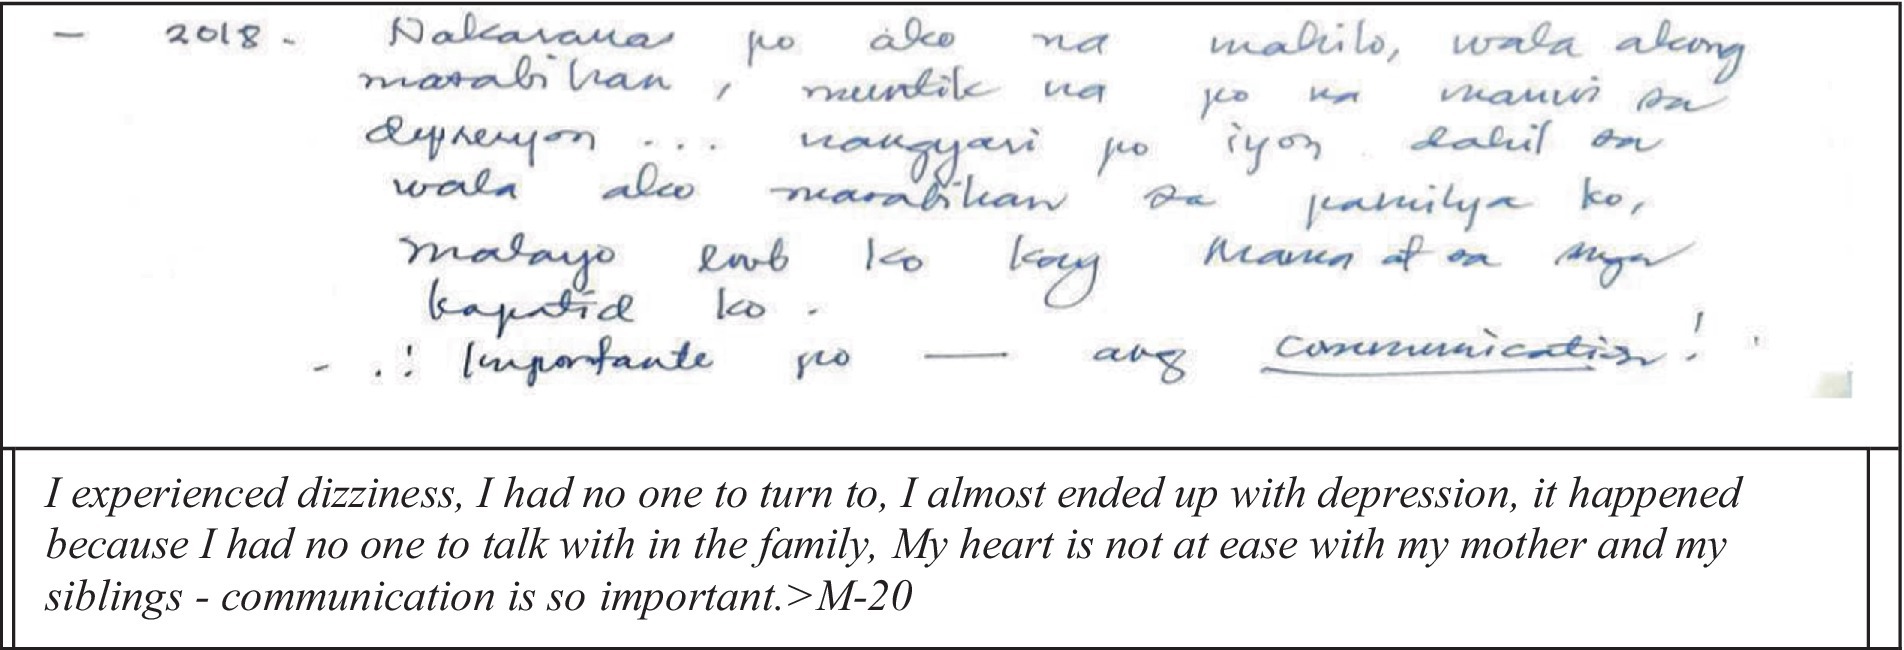 — 2018 - Nakaranas po ako na mahilo, wala akong
masabihan, muntik na po na mauwi sa
depresyon ... nangyari po iyon dahil sa
wala ako masabihan sa pamilya ko,
Malayo loob ko kay Mama at sa mga
kapatid ko.
- .! Importante po — ang communication!
I experienced dizziness, I had no one to turn to, I almost ended up with depression, it happened
because I had no one to talk with in the family, My heart is not at ease with my mother and my
siblings - communication is so important.>M-20